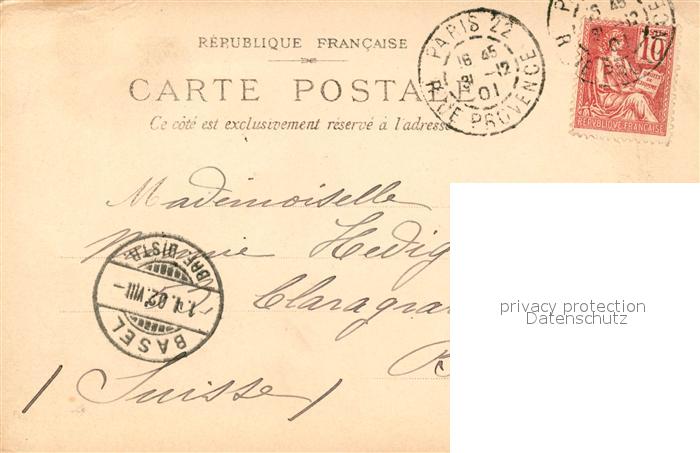 RÉPUBLIQUE FRANÇAISE
CARTE POSTALE
Ce côté est exclusivement réservé à l'adresse
PARIS 22
16 45
31 -12
01
RUE PROVENCE
10
REPUBLIQUE FRANÇAISE
Mademoiselle
Hedig
52 Claragra
B
/ Suisse /
BASEL
1.I.02.VIII-
BRF. DISTR.
privacy protection
Datenschutz